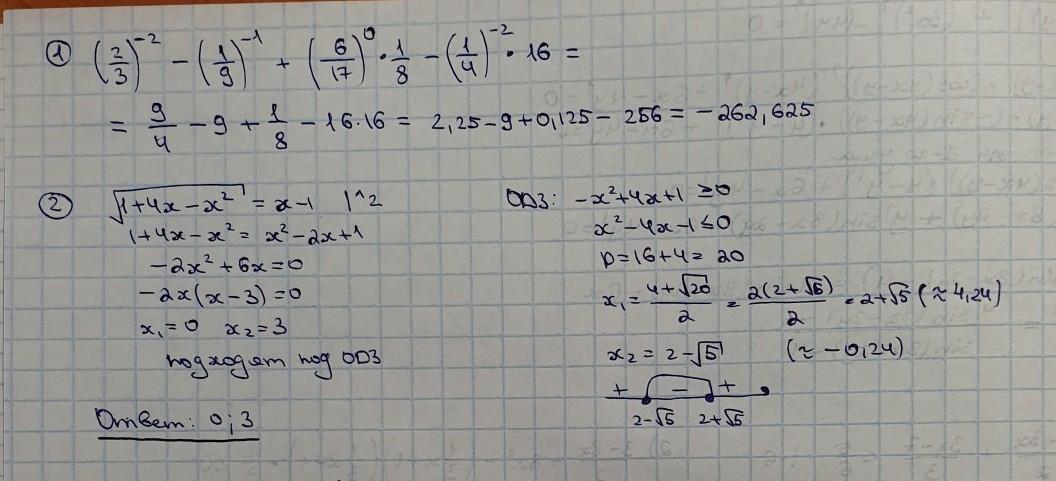 ① (2/3)^-2 - (1/9)^-1 + (6/17)^0 · 1/8 - (1/4)^-2 · 16 =
= 9/4 - 9 + 1/8 - 16·16 = 2,25 - 9 + 0,125 - 256 = -262,625.
② √(1+4x-x²) = x-1 |^2
1+4x-x² = x²-2x+1
-2x²+6x=0
-2x(x-3)=0
x₁=0 x₂=3
подходят под ОДЗ
Ответ: 0; 3
ОДЗ: -x²+4x+1 ≥0
x²-4x-1≤0
D=16+4= 20
x₁= (4+√20)/2 = 2(2+√5)/2 = 2+√5 (≈4,24)
x₂= 2-√5 (≈ -0,24)
+ - +
2-√5 2+√5